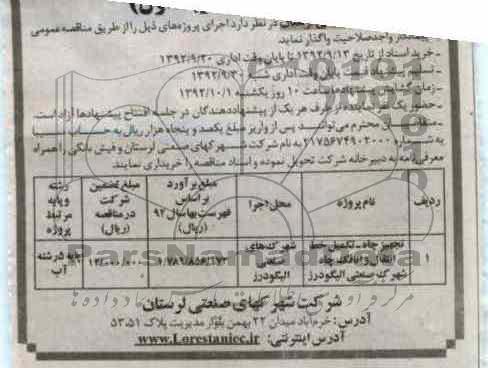 در نظر دارد اجرای پروژه‌های ذیل را از طریق مناقصه عمومی
واجد صلاحیت واگذار نماید.
- خرید اسناد از تاریخ ۱۳۹۲/۹/۱۳ تا پایان وقت اداری ۱۳۹۲/۹/۲۰
پایان وقت اداری
- زمان گشایش پیشنهادها ساعت ۱۰ روز یکشنبه ۱۳۹۲/۱۰/۱
- حضور یک نفر نماینده از طرف هر یک از پیشنهاددهندگان در جلسه افتتاح پیشنهادها آزاد است.
محترم می‌توانند پس از واریز مبلغ یکصد و پنجاه هزار ریال به حساب
به شماره ۲۱۷۵۶۷۴۹۰۲۰۰۰ به نام شرکت شهرکهای صنعتی لرستان و فیش بانکی را همراه
معرفی‌نامه به دبیرخانه شرکت تحویل نموده و اسناد مناقصه را خریداری نمایند.
ردیف
نام پروژه
محل اجرا
مبلغ برآورد
براساس
فهرست بها سال ۹۲
(ریال)
مبلغ تضمین
شرکت
در مناقصه
(ریال)
رشته
و پایه
مرتبط
پروژه
۱
تجهیز چاه - تکمیل خط
انتقال و اتاقک چاه
شهرک صنعتی الیگودرز
شهرک‌های
صنعتی
الیگودرز
پایه ۵ رشته
آب
ParsNamadData
شرکت شهرکهای صنعتی لرستان
آدرس: خرم‌آباد میدان ۲۲ بهمن بلوار مدیریت پلاک ۵۳،۵۱
آدرس اینترنتی: www.Lorestaniec.ir